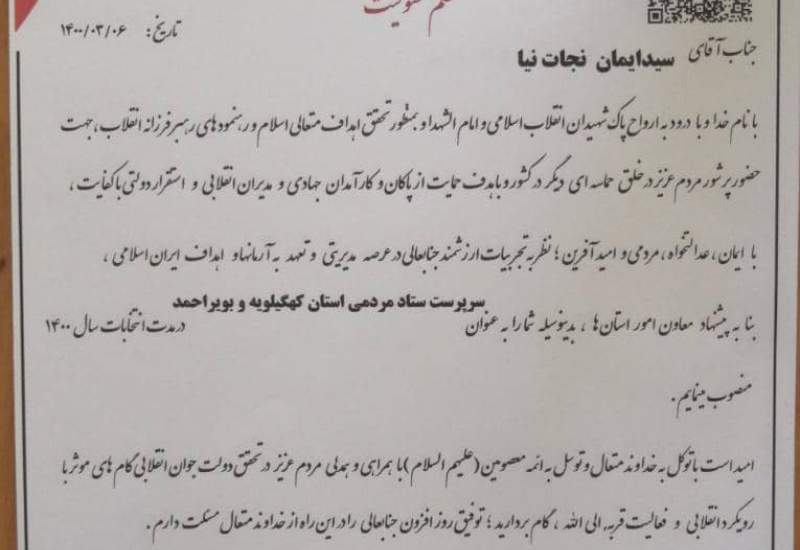 حکم مسئولیت
تاریخ: ۱۴۰۰/۰۳/۰۶
جناب آقای سیدایمان نجات نیا
با نام خدا و با درود به ارواح پاک شهیدان انقلاب اسلامی و امام الشهدا و بمنظور تحقق اهداف متعالی اسلام و رهنمودهای رهبر فرزانه انقلاب، جهت
حضور پرشور مردم عزیز در خلق حماسه ای دیگر در کشور و با هدف حمایت از پاکان و کارآمدان جهادی و مدیران انقلابی و استقرار دولتی با کفایت،
با ایمان، عدالتخواه، مردمی و امید آفرین؛ نظر به تجربیات ارزشمند جنابعالی در عرصه مدیریتی و تعهد به آرمانها و اهداف ایران اسلامی،
بنا به پیشنهاد معاون امور استان‌ها، بدینوسیله شما را به عنوان سرپرست ستاد مردمی استان کهگیلویه و بویراحمد در مدت انتخابات سال ۱۴۰۰
منصوب مینمایم.
امید است با توکل به خداوند متعال و توسل به ائمه معصومین (علیهم السلام) با همراهی و همدلی مردم عزیز در تحقق دولت جوان انقلابی گام های موثر با
رویکرد انقلابی و فعالیت قربه الی الله، گام بردارید؛ توفیق روز افزون جنابعالی را در این راه از خداوند متعال مسئلت دارم.